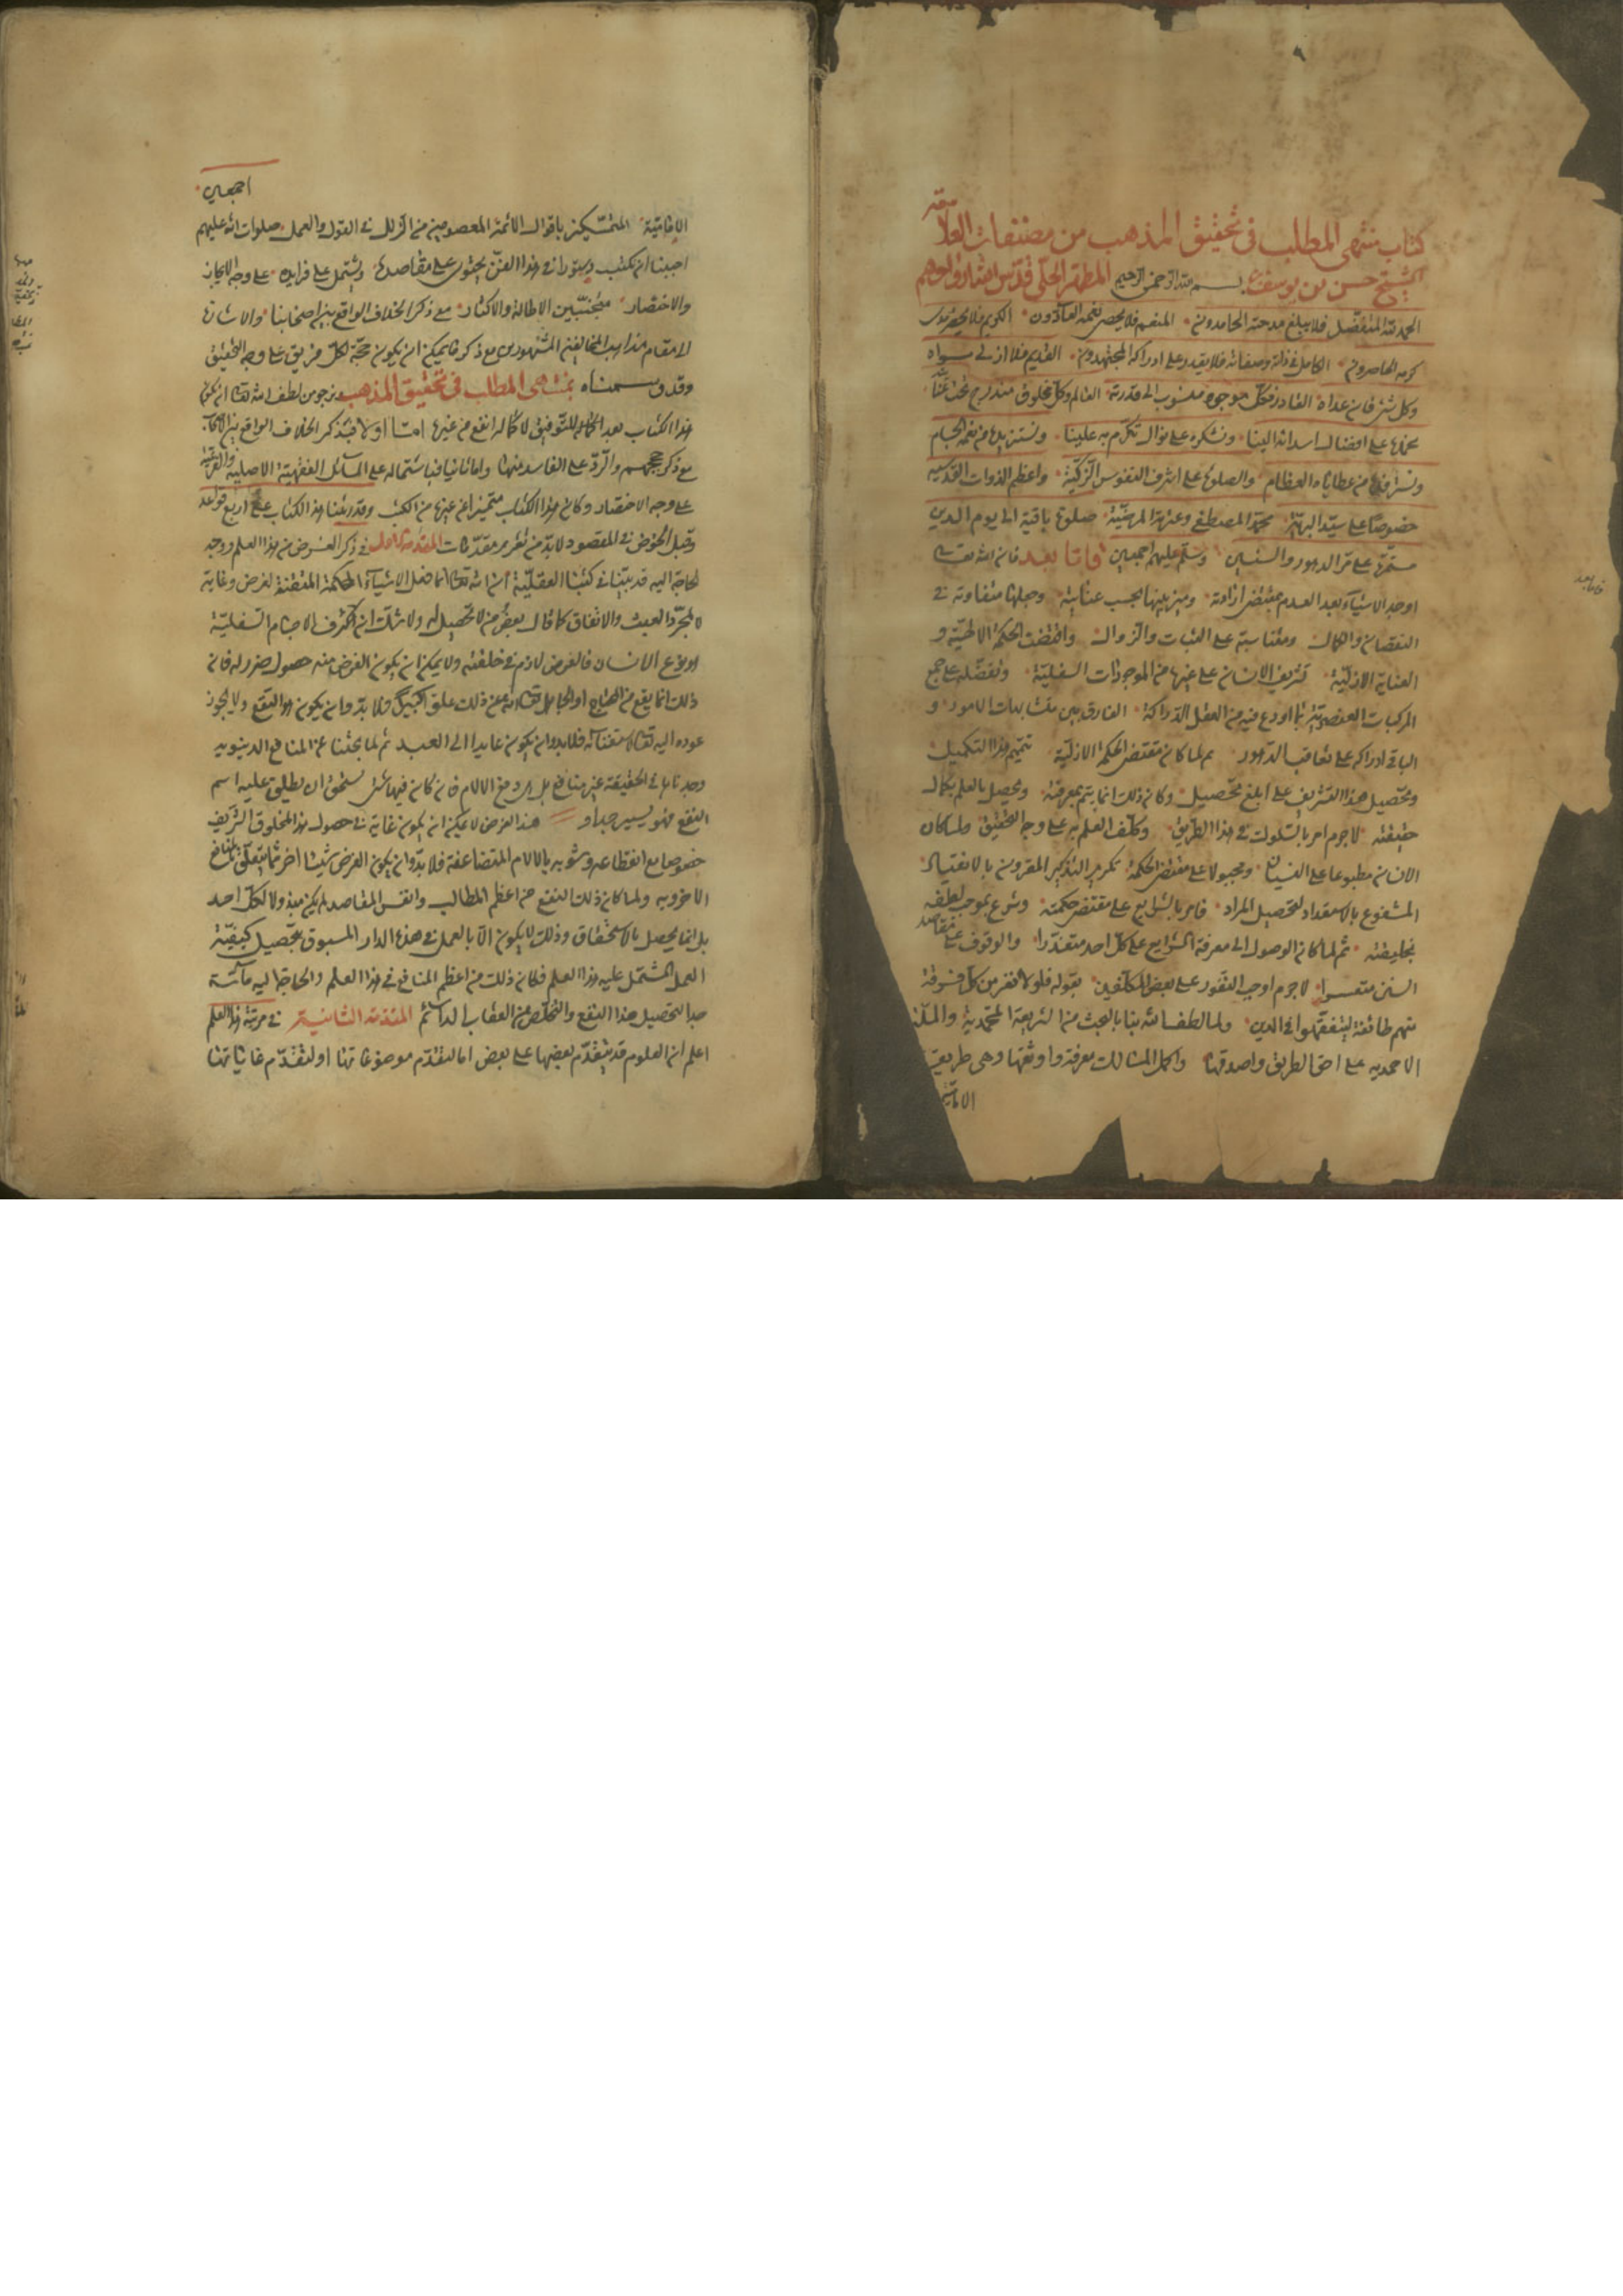 كتاب منتهى المطلب فى تحقيق المذهب من مصنفات العلامة
الشيخ حسن بن يوسف بن بسم الله الرحمن الرحيم المطهر الحلى قدس الله ارواحهم
الحمد لله المتفضل فلا يبلغ مدحته الحامدون المنعم فلا يحصى نعمه العادون الكريم فلا يحصر
كرمه الحاصرون الكامل فى ذاته وصفاته فلا يقدر على ادراكه المجتهدون القديم فلا ازلى سواه
وكل شىء فان عداه القادر فكل موجود منسوب الى قدرته العالم وكل مخلوق مندرج تحت
نحمده على افضال اسداه الينا ونشكره على نوال تكرم به علينا ونستزيده من نعمه الجسام
ونسترفده من عطاياه العظام والصلوة على اشرف النفوس الزكية واعظم الذوات القدسية
خصوصا على سيد البرية محمد المصطفى وعترته المرضية صلوة باقية الى يوم الدين
مستمرة على مر الدهور والسنين وسلم عليهم اجمعين اما بعد فان الله تعالى
اوجد الاشياء بعد العدم بمقتضى ارادته وميز بينها بحسب عنايته وجعلها متفاوتة فى
النقصان والكمال ومتناسبة على الثبات والزوال واقتضت الحكمة الالهية و
العناية الازلية تشريف الانسان على غيره من الموجودات السفلية وتفضله على جميع
المركبات العنصرية بما اودع فيه من العقل الدراكة الفارق بين متشابهات الامور و
الباقى ادراكه على تعاقب الدهور ثم لما كان مقتضى الحكمة الازلية تتميم هذا التكميل
وتحصيل هذا التشريف على ابلغ تحصيل وكان ذلك انما يتم بمعرفته ويحصل بالعلم بكمال
حقيقته لا جرم امر بالسلوك فى هذا الطريق وكلف العلم به على وجه التحقيق ولما كان
الانسان مطبوعا على النسيان ومجبولا على مقتضى الحكمة تكرير التذكير المقرون بالاختيار
المشفوع بالاستعداد لتحصيل المراد فامر بالشرايع على مقتضى حكمته وشرع بموجب لطفه
بخليقته ثم لما كان الوصول الى معرفة الشرايع على كل احد متعذرا والوقوف على مقاصد
السنن متعسرا لا جرم اوجب النفور على بعض المكلفين بقوله فلولا نفر من كل فرقة
منهم طائفة ليتفقهوا فى الدين ولما لطف الله بنا بالبحث من الشريعة المحمدية والملة
الاحمدية على احق الطريق واصدقها واكمل المسالك معرفة واوثقها وهى طريقة
الامامية
اجمعين
الامامية المتمسكين باقوال الائمة المعصومين من الزلل فى القول والعمل صلوات الله عليهم
احببنا ان نكتب دستورا فى هذا الفن يحتوى على مقاصده ويشتمل على فرايده على وجه الايجاز
والاختصار مجتنبين الاطالة والاكثار مع ذكر الخلاف الواقع بين اصحابنا والاشارة
الى مقام مذاهب المخالفين المشهورين مع ذكر ما يمكن ان يكون حجة لكل فريق على وجه التحقيق
وقد وسمناه بمنتهى المطلب فى تحقيق المذهب ونرجو من لطف الله تعالى ان يكون
هذا الكتاب بعد للتوفيق لاكماله انفع من غيره اما اولا فبذكر الخلاف الواقع بين
مع ذكر حججهم والرد على الفاسد منها واما ثانيا فباشتماله على المسائل الفقهية الاصلية والفرعية
على وجه الاختصار وكان هذا الكتاب متميزا عن غيره من الكتب وقد رتبنا هذا الكتاب على اربع قواعد
وقبل الخوض فى المقصود لا بد من تقرير مقدمات المقدمة الاولى فى ذكر الغرض من هذا العلم ووجه
الحاجة اليه قد بينا فى كتبنا العقلية ان الله تعالى انما فعل الاشياء المحكمة المتقنة لغرض وغاية
لا لمجرد العبث والاتفاق كما قال بعض من لا تحصيل له ولا شك ان اشرف الاجسام السفلية
هو نوع الانسان فالغرض لازم فى خلقته ولا يمكن ان يكون الغرض منه حصول ضرر له فان
ذلك انما يقع من المحتاج او الجاهل تعالى الله عن ذلك علوا كبيرا فلا بد وان يكون هو النفع ولا يجوز
عوده اليه تعالى لاستغنائه فلا بد وان يكون عايدا الى العبد ثم لما بحثنا عن المنافع الدينوية
وجدناها فى الحقيقة غير منافع بل هى دفع الالام فان كان فيها شىء يستحق ان يطلق عليه اسم
النفع فهو يسير جدا و هذا الغرض لا يمكن ان يكون غاية فى حصول هذا المخلوق الشريف
خصوصا مع انقطاعه وشوبه بالالام المتضاعفة فلا بد وان يكون الغرض شيئا اخر مما يتعلق بالمنافع
الاخروية ولما كان ذلك النفع من اعظم المطالب وانفس المقاصد لم يكن مبذولا لكل احد
بل انما يحصل بالاستحقاق وذلك لا يكون الا بالعمل فى هذه الدار المسبوق بتحصيل كيفية
العمل المشتمل عليه هذا العلم فكان ذلك من اعظم المنافع فى هذا العلم والحاجة اليه ماسة
جدا لتحصيل هذا النفع والتخلص من العقاب الدائم المقدمة الثانية فى مرتبة هذا العلم
اعلم ان العلوم قد يتقدم بعضها على بعض اما لتقدم موضوعاتها او لتقدم غاياتها